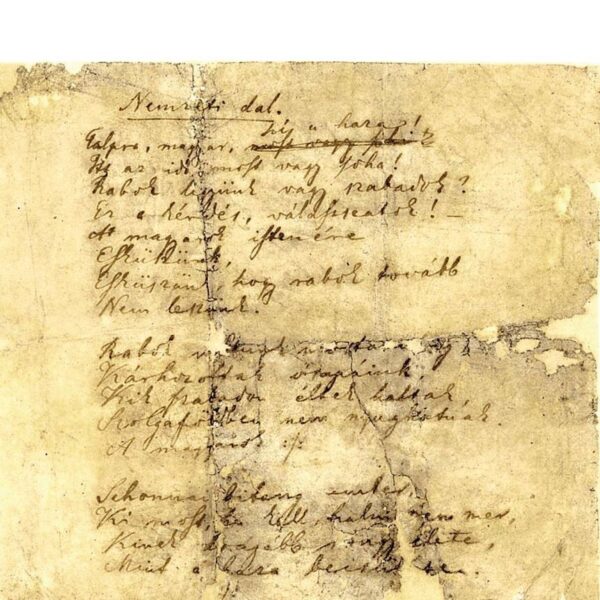 Nemzeti dal.
hí a haza!
Talpra, magyar, most vagy soha!
Itt az idő most vagy soha!
Rabok legyünk vagy szabadok?
Ez a kérdés, válasszatok! –
A magyarok istenére
Esküszünk,
Esküszünk, hogy rabok tovább
Nem leszünk.
Rabok voltunk mostanáig
Kárhozottak ősapáink,
Kik szabadon éltek haltak,
Szolgaföldben nem nyughatnak.
A magyarok :/:
Sehonnai bitang ember,
Ki most, ha kell, halni nem mer,
Kinek drágább rongy élete,
Mint a haza becsülete.